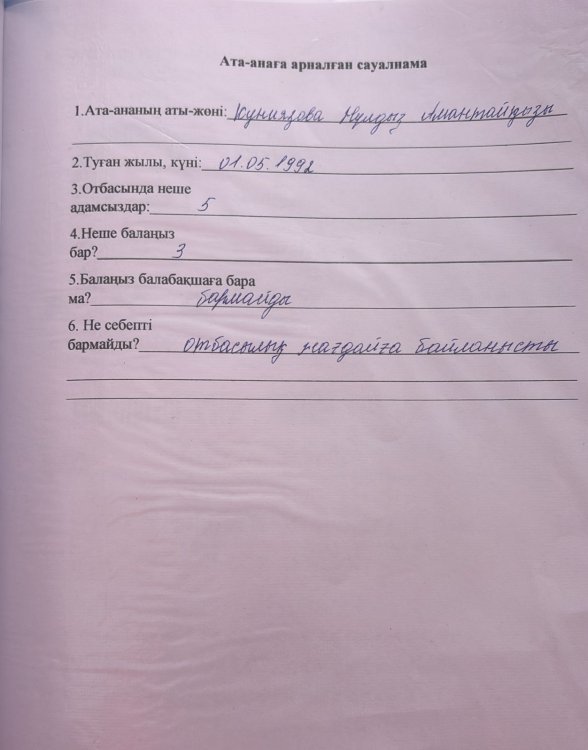 Ата-анаға арналған сауалнама
1.Ата-ананың аты-жөні: Куниязова Нұлдыз Амантайқызы
2.Туған жылы, күні: 01.05.1992
3.Отбасында неше
адамсыздар: 5
4.Неше балаңыз
бар? 3
5.Балаңыз балабақшаға бара
ма? бармайды
6. Не себепті
бармайды? отбасылық жағдайға байланысты